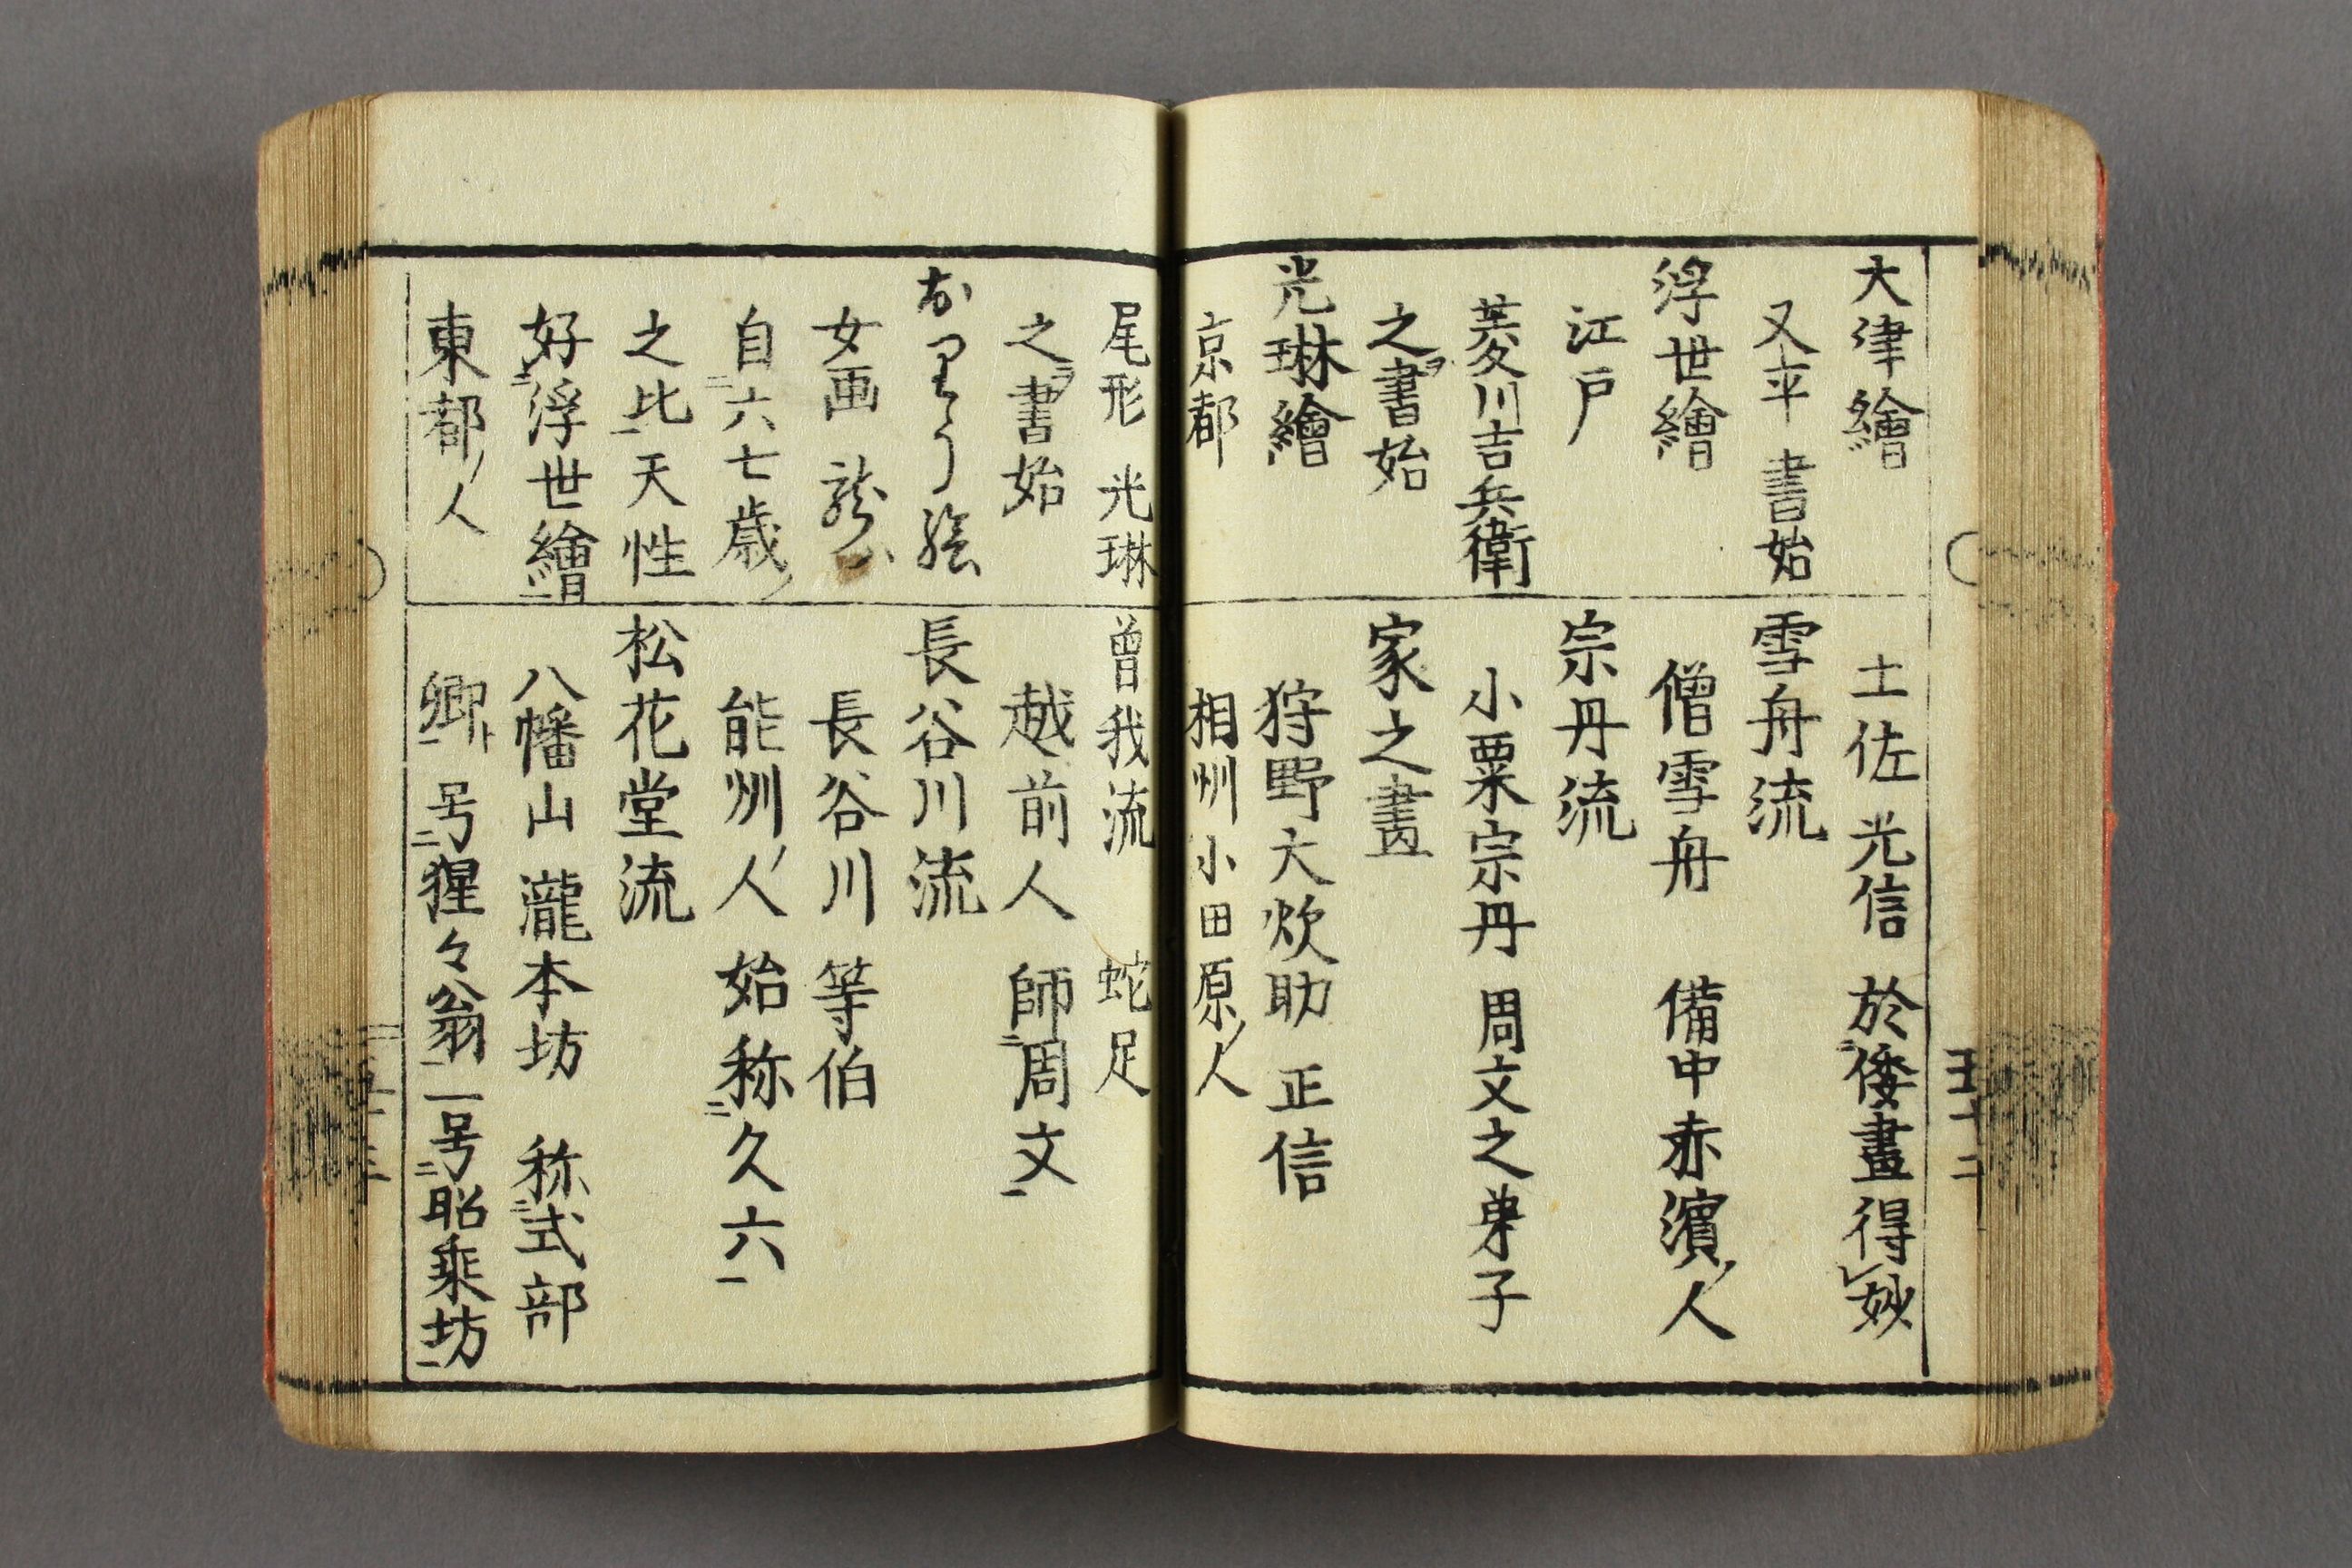 大津繪
又平 書始
浮世繪
江戸
菱川吉兵衛
之ヲ書始
光琳繪
京都
土佐 光信 於二倭畫得レ妙
雪舟流
僧雪舟 備中赤濱ノ人
宗丹流
小粟宗丹 周文之弟子
家之畫
狩野大炊助 正信
相州小田原ノ人
五十二
尾形 光琳
之ヲ書始
おりう絵
女画 龍
自二六七歳ノ
之比一天性
好二浮世繪一
東都ノ人
曽我流 蛇足
越前人 師二周文一
長谷川流
長谷川 等伯
能州ノ人 始称二久六一
松花堂流
八幡山 瀧本坊 称二式部
卿ト一 号二猩々翁一 一号二昭乗坊一